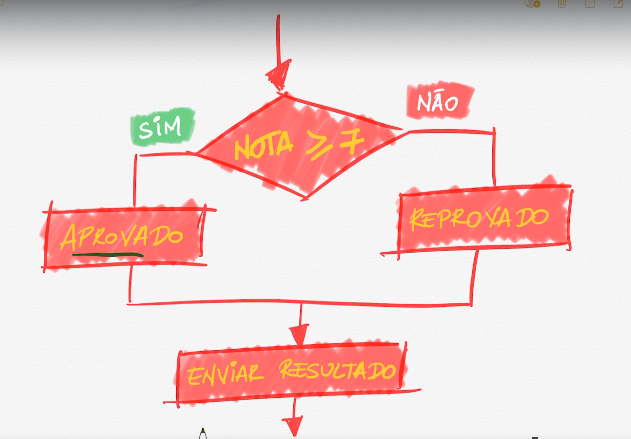 NÃO
SIM
NOTA ≥ 7
APROVADO
REPROVADO
ENVIAR RESULTADO